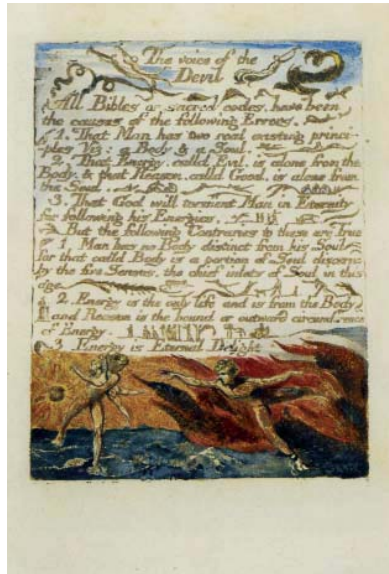 The voice of the
Devil
All Bibles or sacred codes. have been
the causes of the following Errors.
1. That Man has two real existing princi-
ples Viz: a Body & a Soul.
2. That Energy. calld Evil. is alone from the
Body. & that Reason. calld Good. is alone from
the Soul.
3. That God will torment Man in Eternity
for following his Energies.
But the following Contraries to these are True
1. Man has no Body distinct from his Soul
for that calld Body is a portion of Soul discernd
by the five Senses. the chief inlets of Soul in this
age
2. Energy is the only life and is from the Body
and Reason is the bound or outward circumference
of Energy.
3. Energy is Eternal Delight